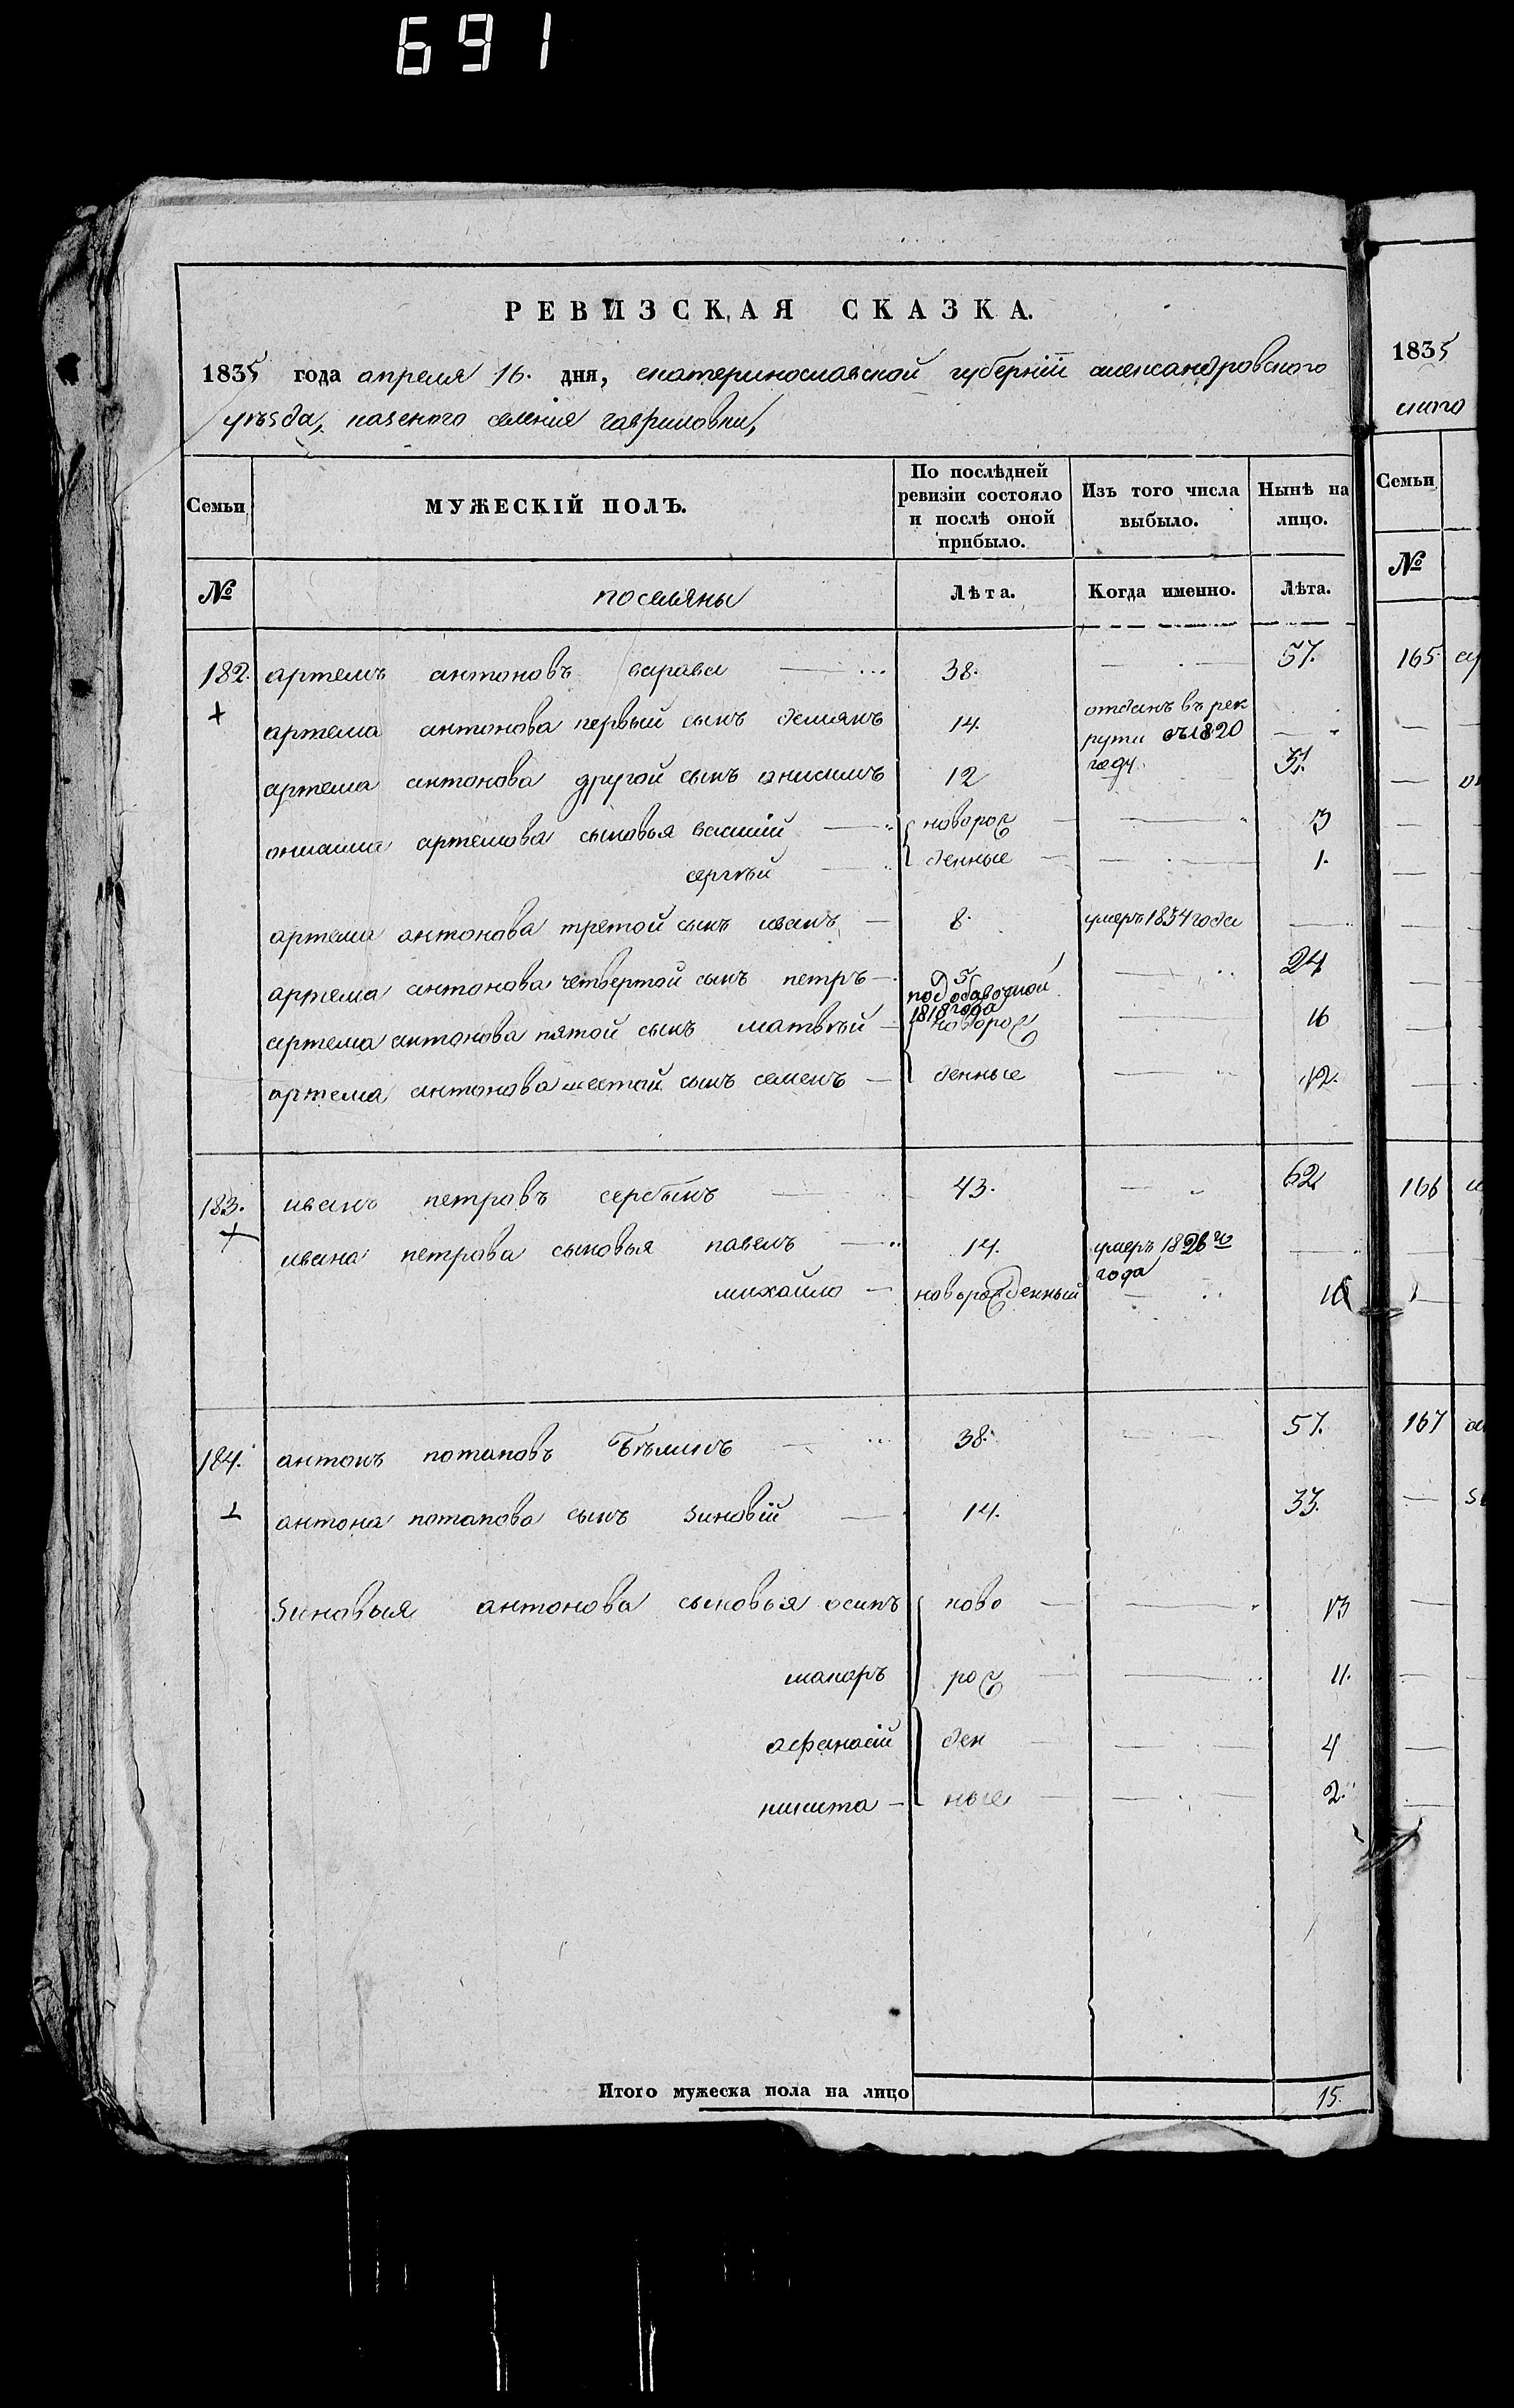 691
РЕВИЗСКАЯ СКАЗКА.
1835 года апреля 16. дня, екатеринославской губерніи александровского
уѣзда, казеного селения гавриловки,
Семьи МУЖЕСКІЙ ПОЛЪ. По послѣдней ревизіи состояло и послѣ оной прибыло. Изъ того числа выбыло. Нынѣ на лицо.
№ поселяны Лѣта. Когда именно. Лѣта.
182. артемъ антоновъ варава 38. 57.
артема антонова первый сынъ демянъ 14. отданъ въ рек
рути въ 1820
году.
артема антонова другой сынъ онисимъ 12 31.
онисима артемова сыновья василій новорож 3
сергѣй денные 1.
артема антонова третой сынъ иванъ 8. умеръ 1834 года
артема антонова четвертой сынъ петръ 5 24
по добавочной
1818 года
артема антонова пятой сынъ матвѣй новорож 16
артема антонова шестой сынъ семенъ денные 12.
183. иванъ петровъ сербинъ 43. 62
ивана петрова сыновья павелъ 14. умеръ 1826го
года
михайло новорожденный
184. антонъ потаповъ Бѣликъ 38. 57.
антона потапова сынъ зиновій 14. 33.
зиновия антонова сыновья осипъ ново 13
макаръ рож 11.
афанасій ден 4
никита ные 2.
Итого мужеска пола на лицо 15.
1835
Семьи
№
165
166
167